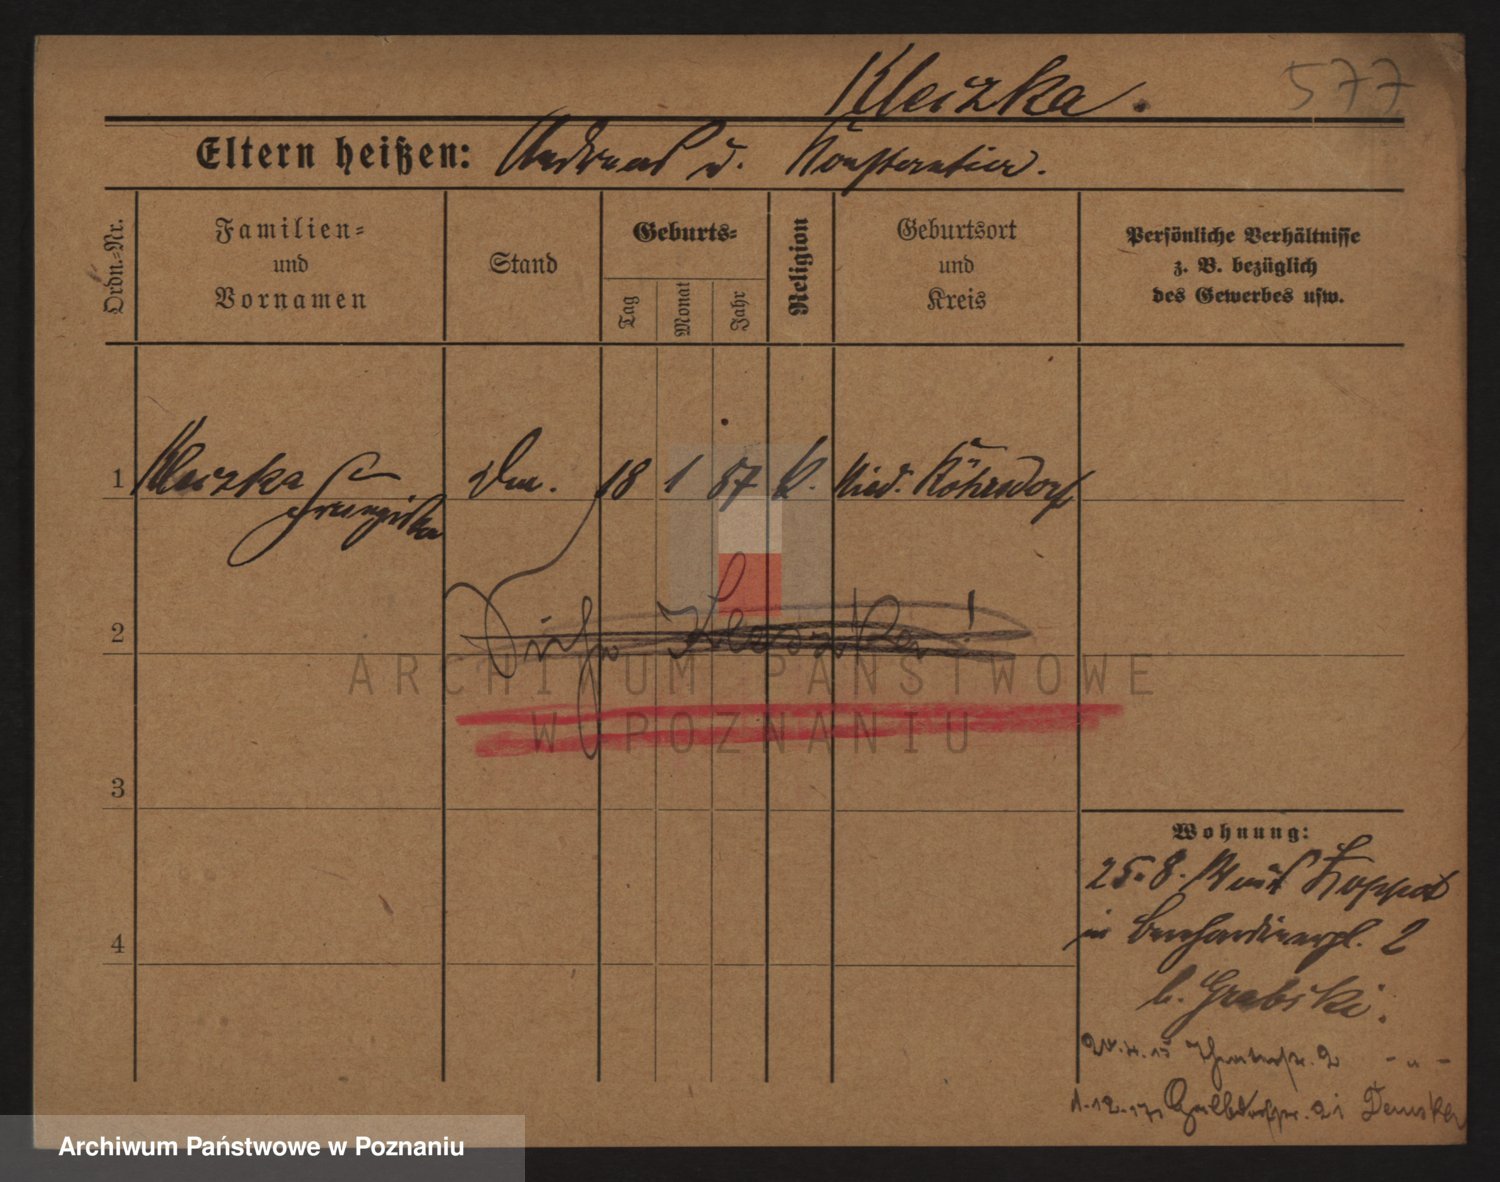 Kleizka.
577
Eltern heißen: Andreas u. Konstantia.
Ordn.=Nr.
Familien=
und
Vornamen
Stand
Geburts=
Tag
Monat
Jahr
Religion
Geburtsort
und
Kreis
Persönliche Verhältnisse
z. B. bezüglich
des Gewerbes usw.
1 Kleizka Franziska 18 1 87 k. Nied. Röhrsdorf
2 Siehe
3
4
Wohnung:
25.8.14 aus
in Bernhardinerpl. 2
b. Grabski.
2 - " -
1.12.17
ARCHIWUM PAŃSTWOWE
W POZNANIU
Archiwum Państwowe w Poznaniu